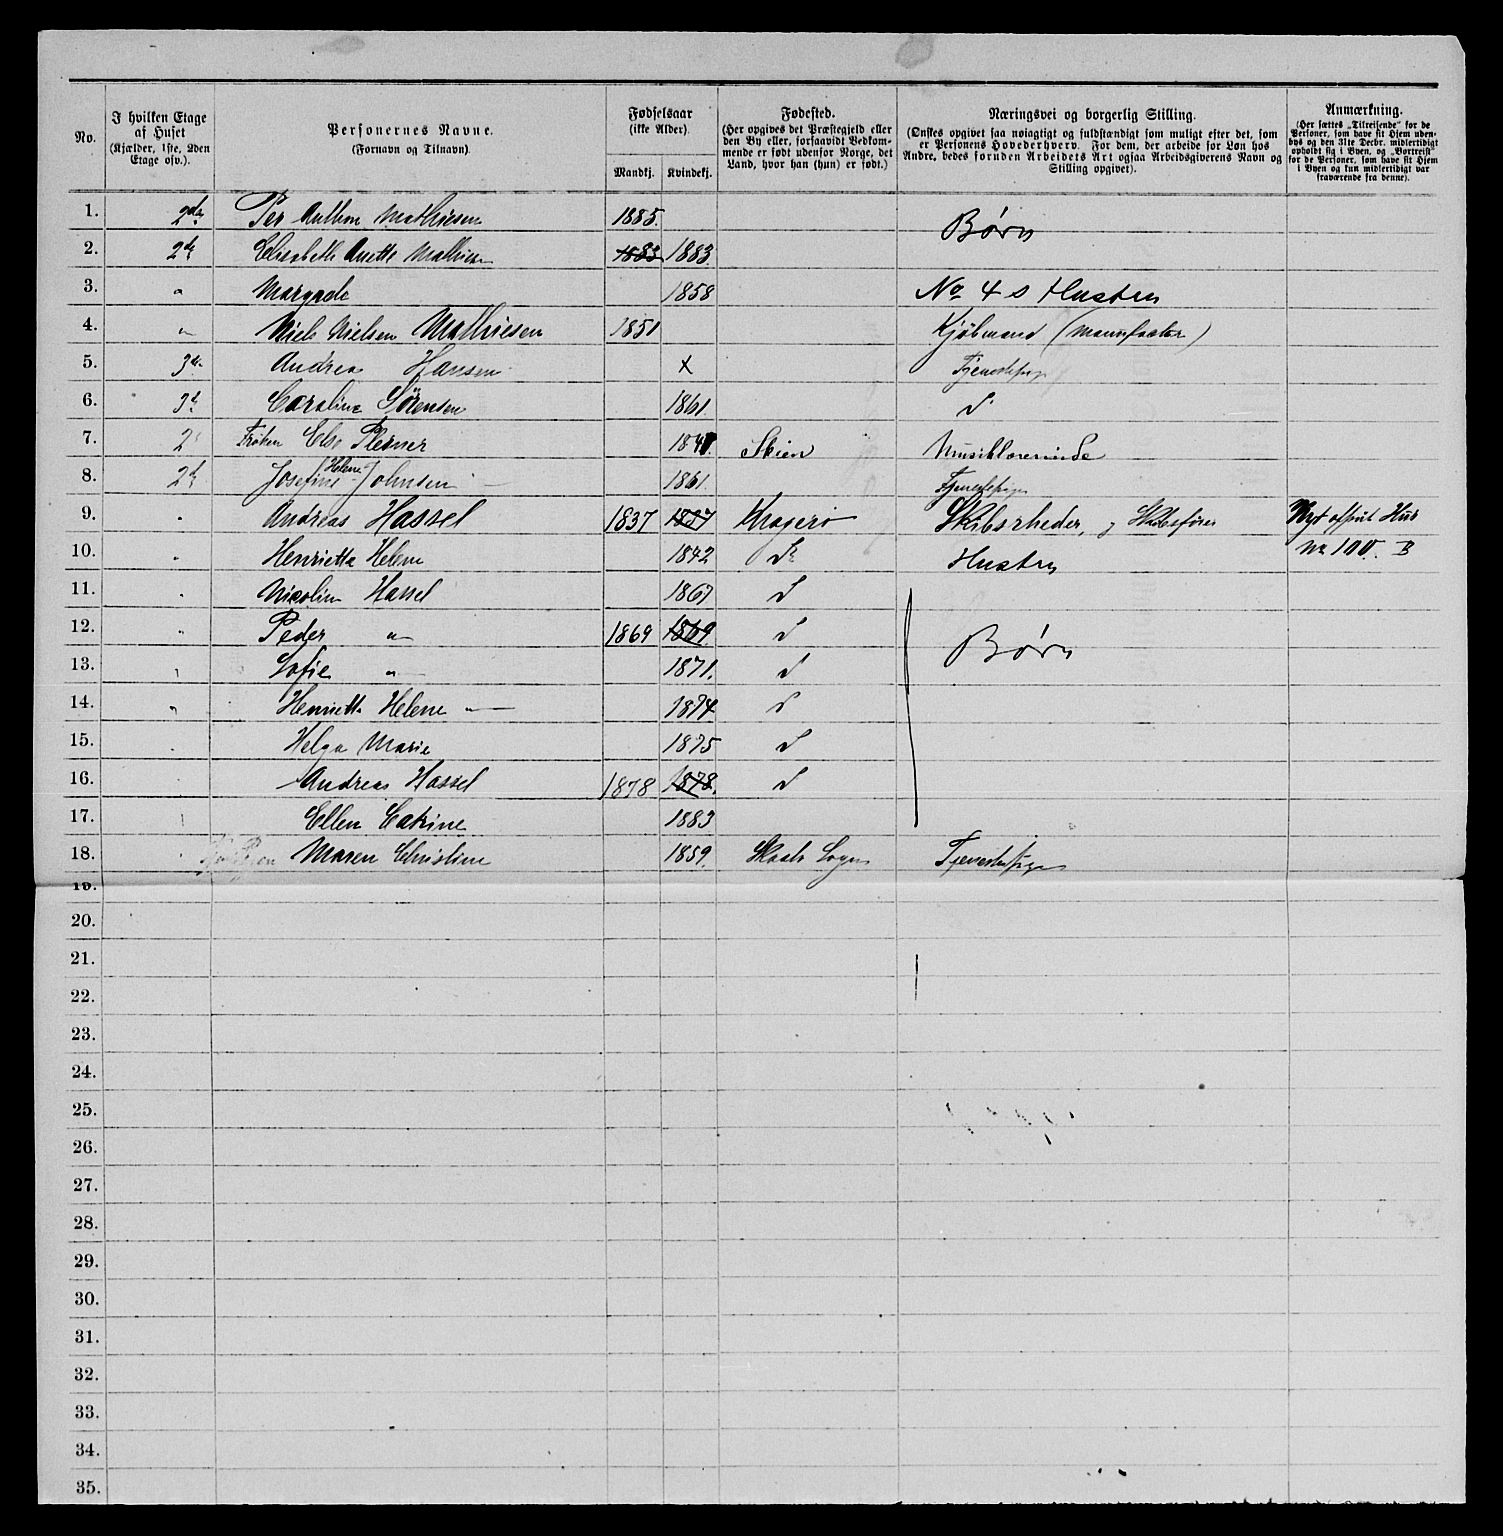 No.
I hvilken Etage af Huset
(Kjælder, 1ste, 2den Etage osv.).
Personernes Navne.
(Fornavn og Tilnavn).
Fødselsaar
(ikke Alder).
Mandkj. Kvindekj.
Fødested.
(Her opgives det Præstegjeld eller
den By eller, forsaavidt Vedkom-
mende er født udenfor Norge, det
Land, hvor han (hun) er født.)
Næringsvei og borgerlig Stilling.
(Ønskes opgivet saa nøiagtigt og fuldstændigt som muligt efter det, som
er Personens Hovederhverv. For dem, der arbeide for Løn hos
Andre, bedes foruden Arbeidets Art ogsaa Arbeidsgiverens Navn og
Stilling opgivet).
Anmærkning.
(Her sættes „Tilreisende“ for de
Personer, som have sit Hjem uden-
bys og den 31te Decbr. midlertidigt
opholdt sig i Byen, og „Bortreist“
for de Personer, som have sit Hjem
i Byen og kun midlertidigt var
fraværende fra denne).
1. 2den Per Anthon Mathiesen 1885. Børn
2. 2d Elisabeth Anette Mathisen 1883 1883.
3. " Margrede 1858 No 4 s Hustru
4. " Niels Nielsen Mathiesen 1851 Kjøbmand (Manufactor)
5. 3d Andrea Hansen x Tjenestepige
6. 3d Caroline Sørensen 1861 d
7. 2d Frøken Else Plesner Skien Musiklærerinde
8. 2d Josefine Helene Johnsen 1861 Tjenestepige
9. " Andreas Hassel 1837 1837 Kragerø Skibsrheder, og Skibsfører Nyt Hus
10. " Henrietta Helene 1842 Do Hustru No 100. B
11. " Nicoline Hassel 1867 d
12. " Peder " 1869 1869 d Børn
13. " Sofie " 1871. d
14. " Henrietta Helene " 1874 d
15. " Helga Marie 1875 d
16. Andreas Hassel 1878 1878. d
17. " Ellen Catrine 1883
18. " Maren Christine 1859. Skaatø Sogn Tjenestepige
19.
20.
21.
22.
23.
24.
25.
26.
27.
28.
29.
30.
31.
32.
33.
34.
35.